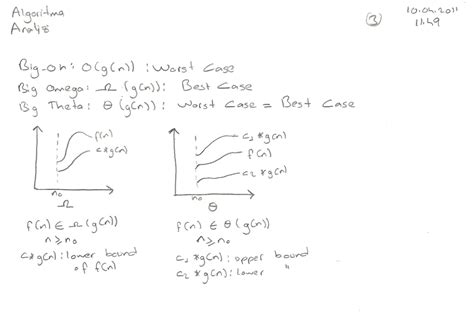 Algoritma
Analiz
3
10.04.2011
11:49
Big-oh: O(g(n)) : Worst Case
Big Omega: Ω (g(n)): Best Case
Big Theta: Θ (g(n)): Worst Case = Best Case
f(n)
c*g(n)
n₀
Ω
f(n) ∈ Ω(g(n))
n ≥ n₀
c*g(n): lower bound
of f(n)
c₁*g(n)
f(n)
c₂*g(n)
n₀
Θ
f(n) ∈ Θ(g(n))
n ≥ n₀
c₁*g(n): upper bound
c₂*g(n): lower "